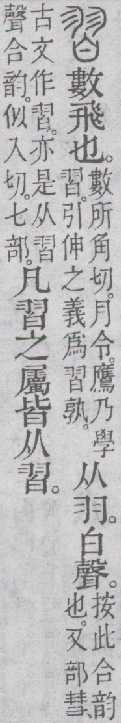 習 數飛也。數所角切。月令。鷹乃學習。引伸之義爲習孰。从羽。白聲。按此合韵也。又部彗、
古文作習。亦是从習聲合韵。似入切。七部。凡習之屬皆从習。